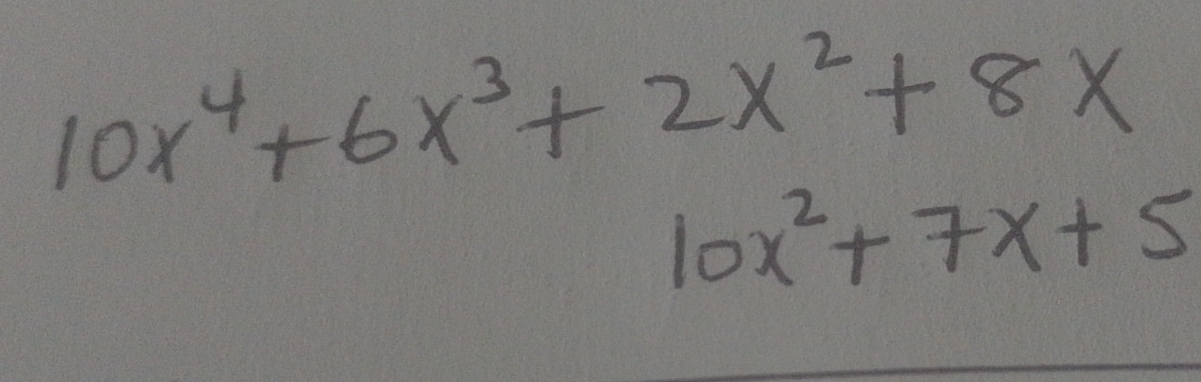 10x⁴+6x³+2x²+8x
10x²+7x+5